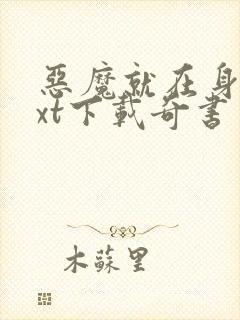 惡魔就在身
xt下載奇書
木蘇里